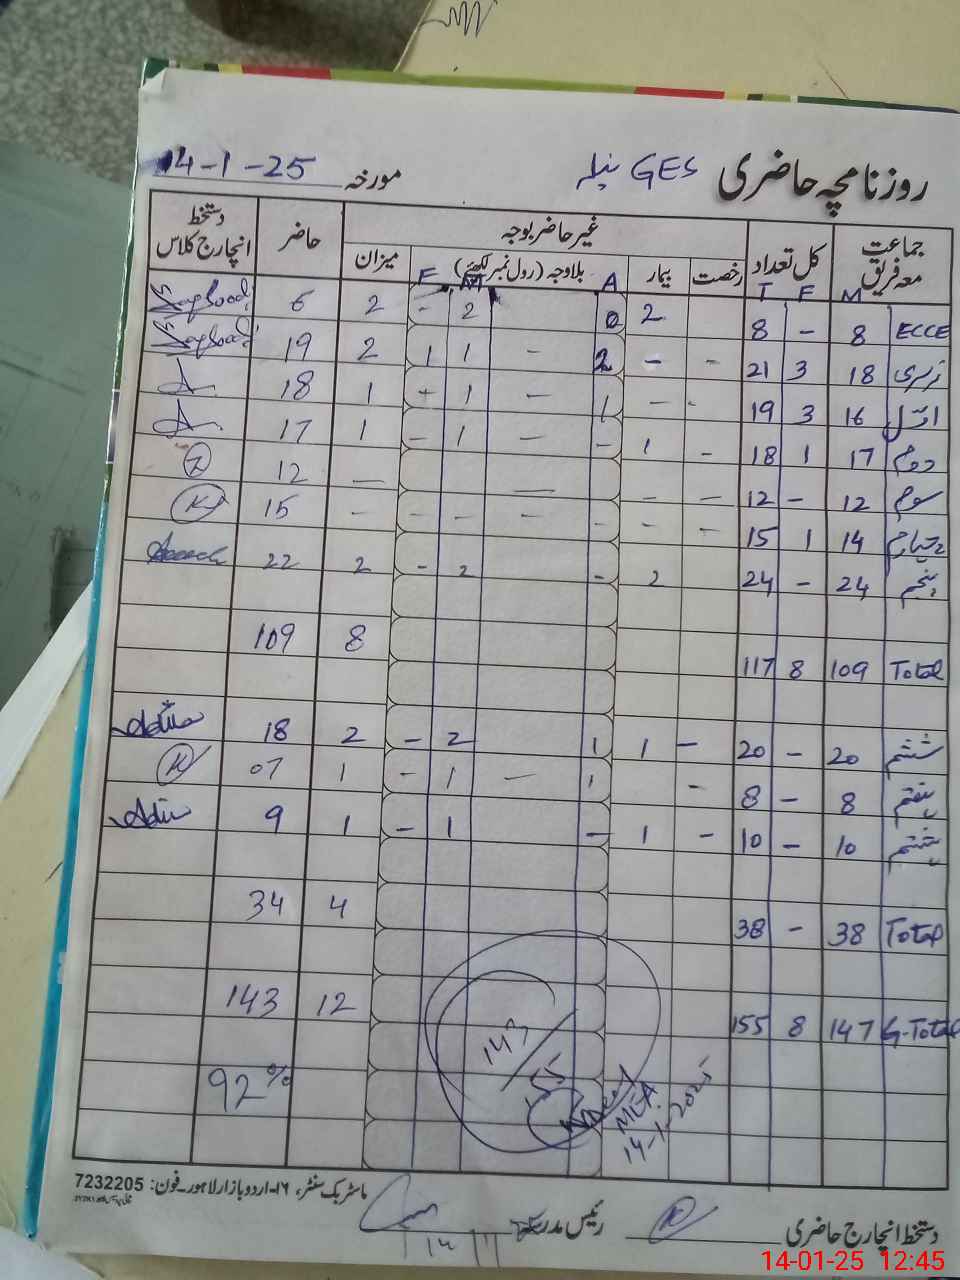 روزنامچہ حاضری GES پنیلہ مورخہ 14-1-25
جماعت معہ فریق کل تعداد غیر حاضر بوجہ حاضر دستخط انچارج کلاس
رخصت بیمار بلاوجہ (رول نمبر لکھئے) میزان
M F T A M F
ECCE 8 - 8 2 0 2 - 2 6
نرسری 18 3 21 - - 2 - 1 1 2 19
اوّل 16 3 19 - - 1 - 1 - 1 18
دوم 17 1 18 - 1 - - 1 - 1 17
سوم 12 - 12 - - — — 12
چہارم 14 1 15 - - - - - - - 15
پنجم 24 - 24 2 - 2 - 2 22
Total 109 8 117 8 109
ششم 20 - 20 - 1 1 2 - 2 18
ہفتم 8 - 8 - 1 - 1 - 1 07
ہشتم 10 - 10 - 1 - 1 - 1 9
Total 38 - 38 4 34
G-Total 147 8 155 12 143
92%
143/155
MEA
14-1-2025
ماسٹر بک سنٹر، ۱۶-اردو بازار لاہور۔ فون: 7232205
دستخط انچارج حاضری رئیس مدرسہ
14-01-25 12:45